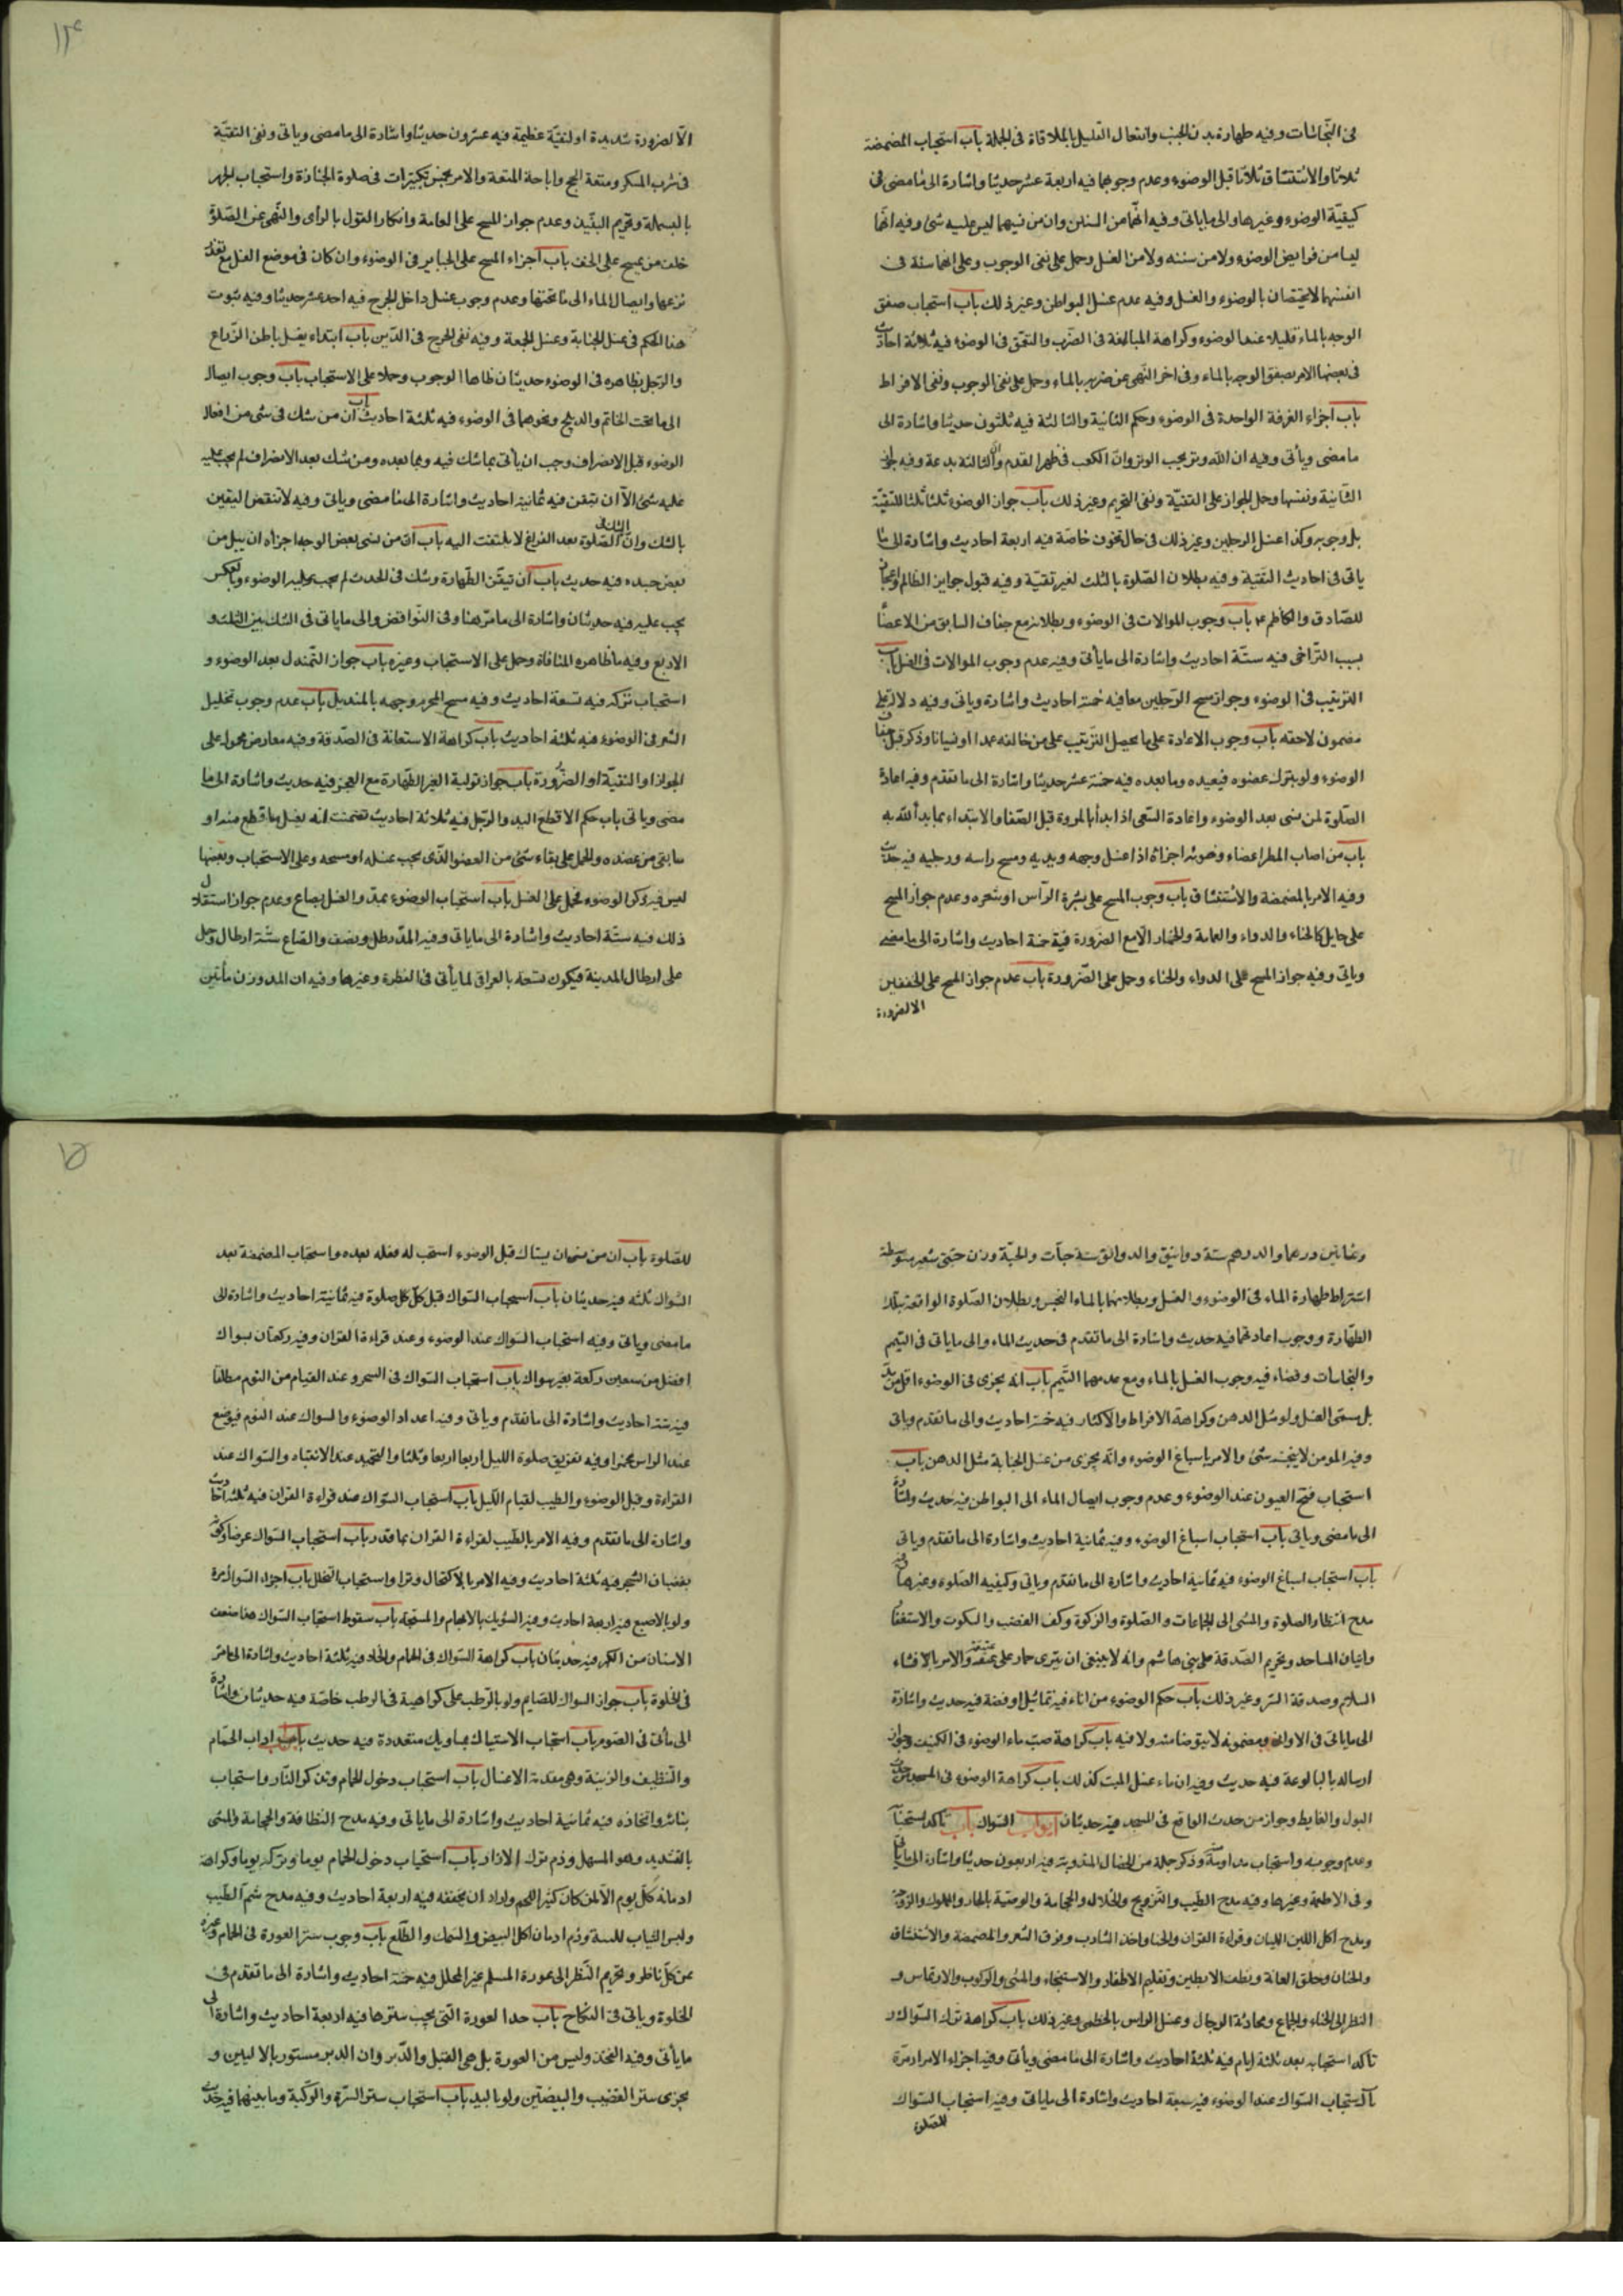 فى النجاسات وفيه طهارة بدن الجنب وانفعال القليل بالملاقاة فى الجملة باب استحباب المضمضة
ثلاثا والاستنشاق ثلاثا قبل الوضوء وعدم وجوبهما فيه اربعة عشر حديثا واشارة الى ما مضى فى
كيفيّة الوضوء وغيرها والى ما ياتى وفيه انّهما من السنن وان من نسيهما ليس عليه شئ وفيه انّهما
ليسا من فرايض الوضوء ولا من سننه ولا من الغسل وحمل على نفى الوجوب وعلى انهما سنة فى
انفسهما لا يختصان بالوضوء والغسل وفيه عدم غسل البواطن وغير ذلك باب استحباب صفق
الوجه بالماء قليلا عند الوضوء وكراهة المبالغة فى الضّرب والتعمّق فى الوضوء فيه ثلاثة احاديث
فى بعضها الامر بصفق الوجه بالماء وفى اخر النّهى عن ضربه بالماء وحمل على نفى الوجوب ونفى الافراط
باب اجزاء الغرفة الواحدة فى الوضوء وحكم الثانية والثالثة فيه ثلثون حديثا واشارة الى
ما مضى ويأتى وفيه ان الله وتر يحب الوتر وانّ الكعب فى ظهر القدم وان الثالثة بدعة وفيه
الثّانية ونفيها وحمل الجواز على التقيّة ونفى التحريم وغير ذلك باب جواز الوضوء ثلثا ثلثا للتقيّة
بل وجوبه وكذا غسل الرجلين وغير ذلك فى حال الخوف خاصّة فيه اربعة احاديث واشارة الى ما
ياتى فى احاديث التقية وفيه بطلان الصّلوة بالثلث لغير تقيّة وفيه قبول جواين الظالم
للصّادق والكاظم ع باب وجوب الموالات فى الوضوء وبطلانه مع جفاف السابق من الاعضاء
بسبب التّراخى فيه ستّة احاديث واشارة الى ما يأتى وفيه عدم وجوب الموالات فى الغسل باب
الترتيب فى الوضوء وجواز مسح الرّجلين معا فيه خمسة احاديث واشارة وياتى وفيه دلالة على
مضمون لاحقه باب وجوب الاعادة على ما يحصل الترتيب على من خالفه عمدا او نسيانا وذكر قبل جفاف
الوضوء ولو بترك عضو فيعيده وما بعده فيه خمسة عشر حديثا واشارة الى ما تقدم وفيه اعادة
الصّلوة لمن نسى بعد الوضوء واعادة السّعى اذا بدأ بالمروة قبل الصّفا والابتداء بما بدأ الله به
باب من اصاب المطر اعضاء وضوئه اجزأه اذا غسل وجهه ويديه ومسح راسه ورجليه فيه حديث
وفيه الامر بالمضمضة والاستنشاق باب وجوب المسح على بشرة الرّأس او شعره وعدم جواز المسح
على حايل كالحناء والدواء والعمامة والخمار الّا مع الضرورة فيه خمسة احاديث واشارة الى ما مضى
وياتى وفيه جواز المسح على الدواء والحناء وحمل على الضّرورة باب عدم جواز المسح على الخفين
الا لضرورة
١٤
الّا لضرورة شديدة او لتقيّة عظيمة فيه عشرون حديثا واشارة الى ما مضى وياتى ونفى التقيّة
فى شرب المسكر ومتعة الحج واباحة المتعة والامر بخمس تكبيرات فى صلوة الجنازة واستحباب الجهر
بالبسملة وتحريم النبيّذ وعدم جواز المسح على العمامة وانكار القول بالرأى والنّهى عن الصّلوة
خلف من يمسح على الخف باب اجزاء المسح على الجباير فى الوضوء وان كان فى موضع الغسل مع تعذر
نزعها وايصال الماء الى ما تحتها وعدم وجوب غسل داخل الجرح فيه احد عشر حديثا وفيه ثبوت
هذا الحكم فى غسل الجنابة وغسل الجمعة وفيه نفى الحرج فى الدّين باب ابتداء بغسل باطن الذّراع
والرّجل بظاهره فى الوضوء حديثان ظاهرا الوجوب وحملا على الاستحباب باب وجوب ايصال
الى ما تحت الخاتم والدملج ونحوهما فى الوضوء فيه ثلثة احاديث باب ان من شك فى شئ من افعال
الوضوء قبل الانصراف وجب ان يأتى بما شك فيه وبما بعده ومن شك بعد الانصراف لم يجب عليه
عليه شئ الّا ان يتيقن فيه ثمانية احاديث واشارة الى ما مضى وياتى وفيه لا تنقض اليقين
بالشك وانّ الشك فى الصّلوة بعد الفراغ لا يلتفت اليه باب ان من نسى بعض الوجه اجزأه ان يبلّ من
بعض جسده فيه حديث باب ان تيقّن الطّهارة وشك فى الحدث لم يجب عليه الوضوء وبالعكس
يجب عليه فيه حديثان واشارة الى ما مرّ هنا وفى النّواقض والى ما ياتى فى الشك بين الثلث و
الاربع وفيه ما ظاهره المنافاة وحمل على الاستحباب وغيره باب جواز التّمندل بعد الوضوء و
استحباب تركه فيه تسعة احاديث وفيه مسح المحرم وجهه بالمنديل باب عدم وجوب تخليل
الشعر فى الوضوء فيه ثلثة احاديث باب كراهة الاستعانة فى الصّدقة وفيه معارض محمول على
الجواز او التقيّة او الضرورة باب جواز تولية الغير الطّهارة مع العجز فيه حديث واشارة الى ما
مضى وياتى باب حكم الاقطع اليد والرّجل فيه ثلاثة احاديث تضمنت انه يغسل ما قطع منه او
ما بقى من عضده والحمل على بقاء شئ من العضو الذّى يجب غسله او مسحه وعلى الاستحباب وبعضها
ليس فيه ذكر الوضوء فحمل على الغسل باب استحباب الوضوء بمدّ والغسل بصاع وعدم جواز استقلال
ذلك فيه ستّة احاديث واشارة الى ما ياتى وفيه المدّ رطل ونصف والصّاع ستّة ارطال وحمل
على ارطال المدينة فيكون تسعة بالعراقى لما يأتى فى الفطرة وغيرها وفيه ان المد وزن مأتين
وثمانين درهما والدرهم ستة دوانيق والدوانق ستة حبّات والحبّة وزن حبتى شعير متوسطة
اشتراط طهارة الماء فى الوضوء والغسل وبطلانهما بالماء النجس وبطلان الصّلوة الواقعة بتلك
الطهّارة ووجوب اعادتها فيه حديث واشارة الى ما تقدم فى حديث الماء والى ما ياتى فى التيمم
والنجاسات وقضاء فيه وجوب الغسل بالماء ومع عدمهما التّيمم باب انّه يجزى فى الوضوء اقل من مدّ
بل مسمّى الغسل ولو مثل الدهن وكراهة الافراط والاكثار فيه خمسة احاديث والى ما تقدم وياتى
وفيه المومن لا ينجسه شئ والامر باسباغ الوضوء وانّه يجزى من غسل الجنابة مثل الدهن باب
استحباب فتح العيون عند الوضوء وعدم وجوب ايصال الماء الى البواطن فيه حديث واشارة
الى ما مضى وياتى باب استحباب اسباغ الوضوء وفيه ثمانية احاديث واشارة الى ما تقدم وياتى
باب استحباب اسباغ الوضوء فيه ثمانية احاديث واشارة الى ما تقدم وياتى وكيفيه الصّلوة وغيرها وفيه
مدح انتظار الصلوة والمشى الى الجماعات والصّلوة والزكوة وكف الغضب والسكوت والاستغفار
واتيان المساجد وتحريم الصّدقة على بنى هاشم وانه لا ينبغى ان ينزى حمار على عتيقة والامر بالافشاء
السلام وصدقة السّر وغير ذلك باب حكم الوضوء من اناء فيه تماثيل او فضة فيه حديث واشارة
الى ما ياتى فى الاوانى ومضمونه لا يتوضا منه ولا فيه باب كراهة صبّ ماء الوضوء فى الكنيف وجواز
ارساله بالبالوعة فيه حديث وفيه ان ماء غسل الميت كذلك باب كراهة الوضوء فى المسجد من حدث
البول والغايط وجواز من حدث الواقع فى المسجد فيه حديثان ابواب السّواك باب تأكد استحبابه
وعدم وجوبه واستحباب مداومته وذكر جملة من الخصال المندوبة فيه اربعون حديثا واشارة الى ما ياتى
وفى الاطعمة وغيرها وفيه مدح الطّيب والتّزويج والخلال والحجامة والوصيّة بالجار والمملوك والزوجة
ومدح اكل اللبن اللبان وقراءة القران والحنا واخذ الشارب وفرق الشعر والمضمضة والاستنشاق
والختان وحلق العانة ونطف الابطين وتقليم الاظفار والاستنجاء والمشى والركوب والارتماس و
النظر الى الخناء والجماع ومحادثة الرجال وغسل الراس بالخطمى وغير ذلك باب كراهة ترك السّواك و
تاكد استحبابه بعد ثلثة ايام فيه ثلثة احاديث واشارة الى ما مضى ويأتى وفيه اجزاء الامرار مرّة
باب استحباب السّواك عند الوضوء فيه سبعة احاديث واشارة الى ما ياتى وفيه استحباب السّواك
للصّلوة
١٥
للصّلوة باب ان من نسى ان يستاك قبل الوضوء استحب له فعله بعده واستحباب المضمضة بعد
السّواك ثلثه فيه حديثان باب استحباب السّواك قبل كلّ كل صلوة فيه ثمانية احاديث واشارة الى
ما مضى وياتى وفيه استحباب السّواك عند الوضوء وعند قراءة القران وفيه ركعتان بسواك
افضل من سبعين ركعة بغير سواك باب استحباب السّواك فى السحر وعند القيام من النوم مطلقا
فيه ستة احاديث واشارة الى ما تقدم وياتى وفيه اعداد الوضوء والسواك عند النوم فيوضع
عند الراس مخمرا وفيه تفريق صلوة الليل اربعا اربعا وثلثا والتحميد عند الانتباه والسّواك عند
القراءة وقبل الوضوء والطيب لقيام اللّيل باب استحباب السّواك عند قراءة القران فيه ثلثة احاديث
واشارة الى ما تقدم وفيه الامر بالطّيب لقراءة القران بما قدر باب استحباب السّواك عرضا وكونه
بقضبان الشجر فيه ثلثة احاديث وفيه الامر بالاكتحال وترا واستحباب التخلل باب اجزاء السّواك مرة
ولو بالاصبع فيه اربعة احاديث وفيه التسويك بالابهام والمسبّحة باب سقوط استحباب السّواك عند ضعف
الاسنان من الكبر فيه حديثان باب كراهة السّواك فى الحمام والخلاء فيه ثلثة احاديث واشارة الى ما مرّ
فى الخلوة باب جواز السواك للصّايم ولو بالرّطب على كراهية فى الرطب خاصّة فيه حديثان واشارة
الى ما ياتى فى الصّوم باب استحباب الاستياك بمساويك متعددة فيه حديث ابواب اداب الحمّام
والتّنظيف والزينة وهى مقدمة الاغسال باب استحباب دخول الحمام وتذكر النّار واستحباب
بنائه واتخاذه فيه ثمانية احاديث واشارة الى ما ياتى وفيه مدح النظافة والحجامة والمشى
بالتشديد وهو المسهل وذم ترك الازار باب استحباب دخول الحمام يوما وتركه يوما وكراهة
ادمانه كلّ يوم الّا لمن كان كثير اللحم واراد ان يخففه فيه اربعة احاديث وفيه مدح شمّ الطّيب
ولبس الثياب للسة وذم ادمان اكل البيض والسمك والطلع باب وجوب ستر العورة فى الحمام وغيره
عن كل ناظر وتحريم النّظر الى عورة المسلم غير المحلل فيه خمسة احاديث واشارة الى ما تقدم فى
الخلوة وياتى فى النّكاح باب حد العورة الّتى يجب سترها فيه اربعة احاديث واشارة الى
ما يأتى وفيه الفخذ وليس من العورة بل هى القبل والدّبر وان الدبر مستور بالاليين و
يجزى ستر القضيب والبيضتين ولو باليد باب استحباب ستر السّرة والرّكبة وما بينهما فيه حديث